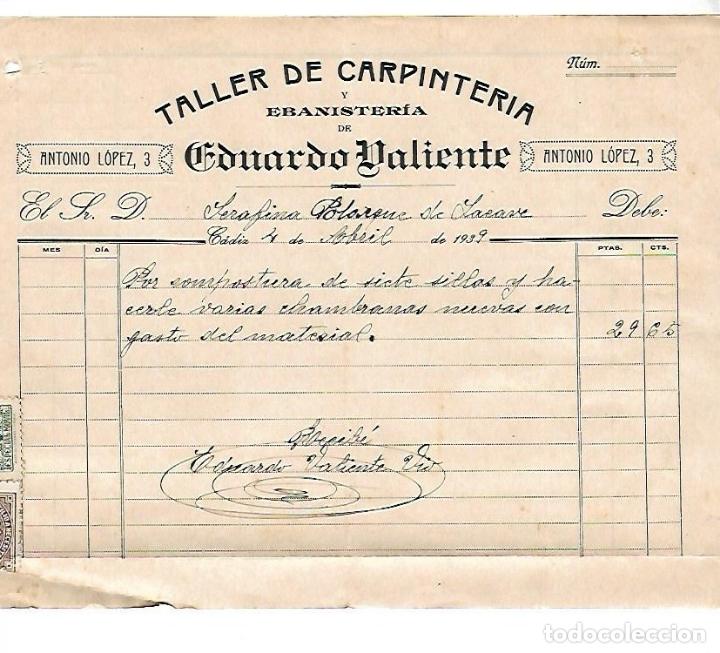 Núm.
TALLER DE CARPINTERIA
Y
EBANISTERÍA
DE
ANTONIO LÓPEZ, 3 Eduardo Valiente ANTONIO LÓPEZ, 3
El Sr. D. Serafina de Lacave Debe:
Cádiz 4 de Abril de 1939
MES DÍA PTAS. CTS.
Por compostura de siete sillas y ha-
cerle varias chambranas nuevas con
gasto del material. 29 65
Recibí
Eduardo Valiente
todocoleccion